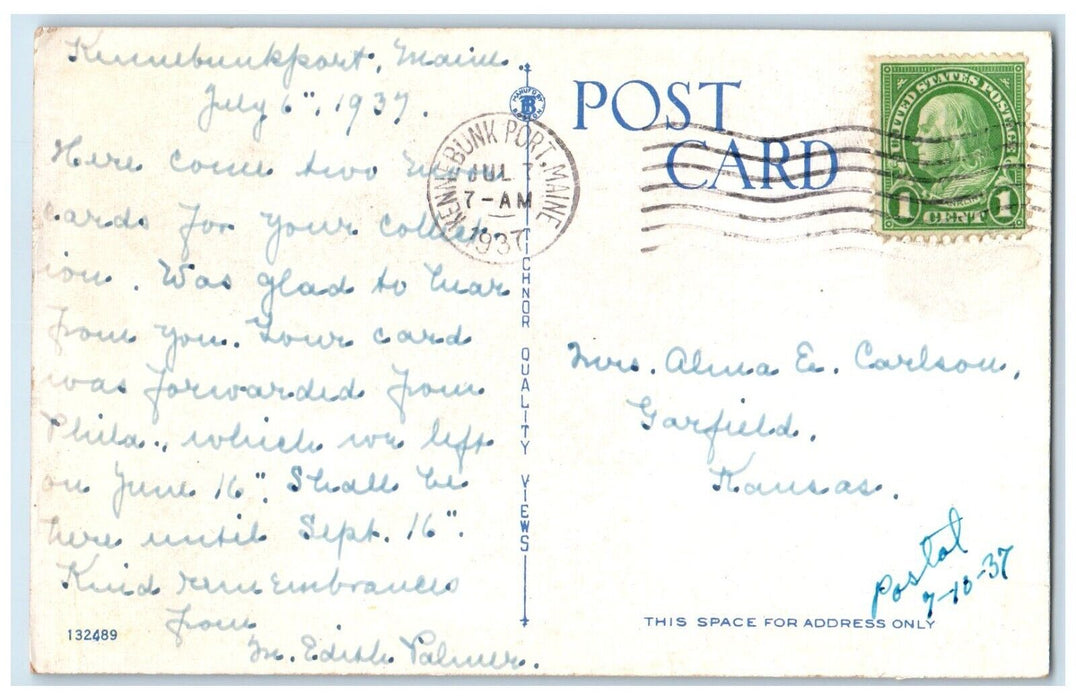 Kennebunkport, Maine.
July 6", 1937.
Here come two
cards for your collect
ion. Was glad to hear
from you. Your card
was forwarded from
Phila., which we left
on June 16". Shall be
here until Sept. 16".
Kind remembrances
from
M. Edith Palmer.
132489
MANUF'D BY
TB
BOSTON
TICHNOR QUALITY VIEWS
KENNEBUNK PORT, MAINE
JUL 7
7-AM
1937
POST
CARD
UNITED STATES POSTAGE
FRANKLIN
1 CENT 1
Mrs. Alma E. Carlson,
Garfield,
Kansas.
Postal
7-10-37
THIS SPACE FOR ADDRESS ONLY